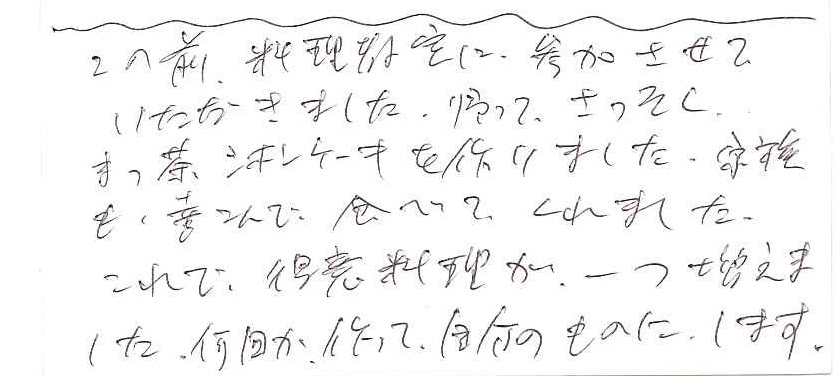 この前、料理教室に、参加させて
いただきました。帰って、さっそく、
まっ茶シホンケーキを作りました。家族
も、喜こんで、食べて、くれました。
これで、得意料理が、一つ増えま
した。何回か、作って、自分のものに、します。